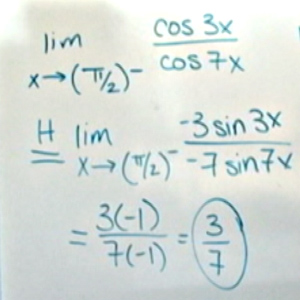 lim x→(π/2)⁻ cos 3x / cos 7x
H= lim x→(π/2)⁻ -3 sin 3x / -7 sin 7x
= 3(-1) / 7(-1) = 3/7